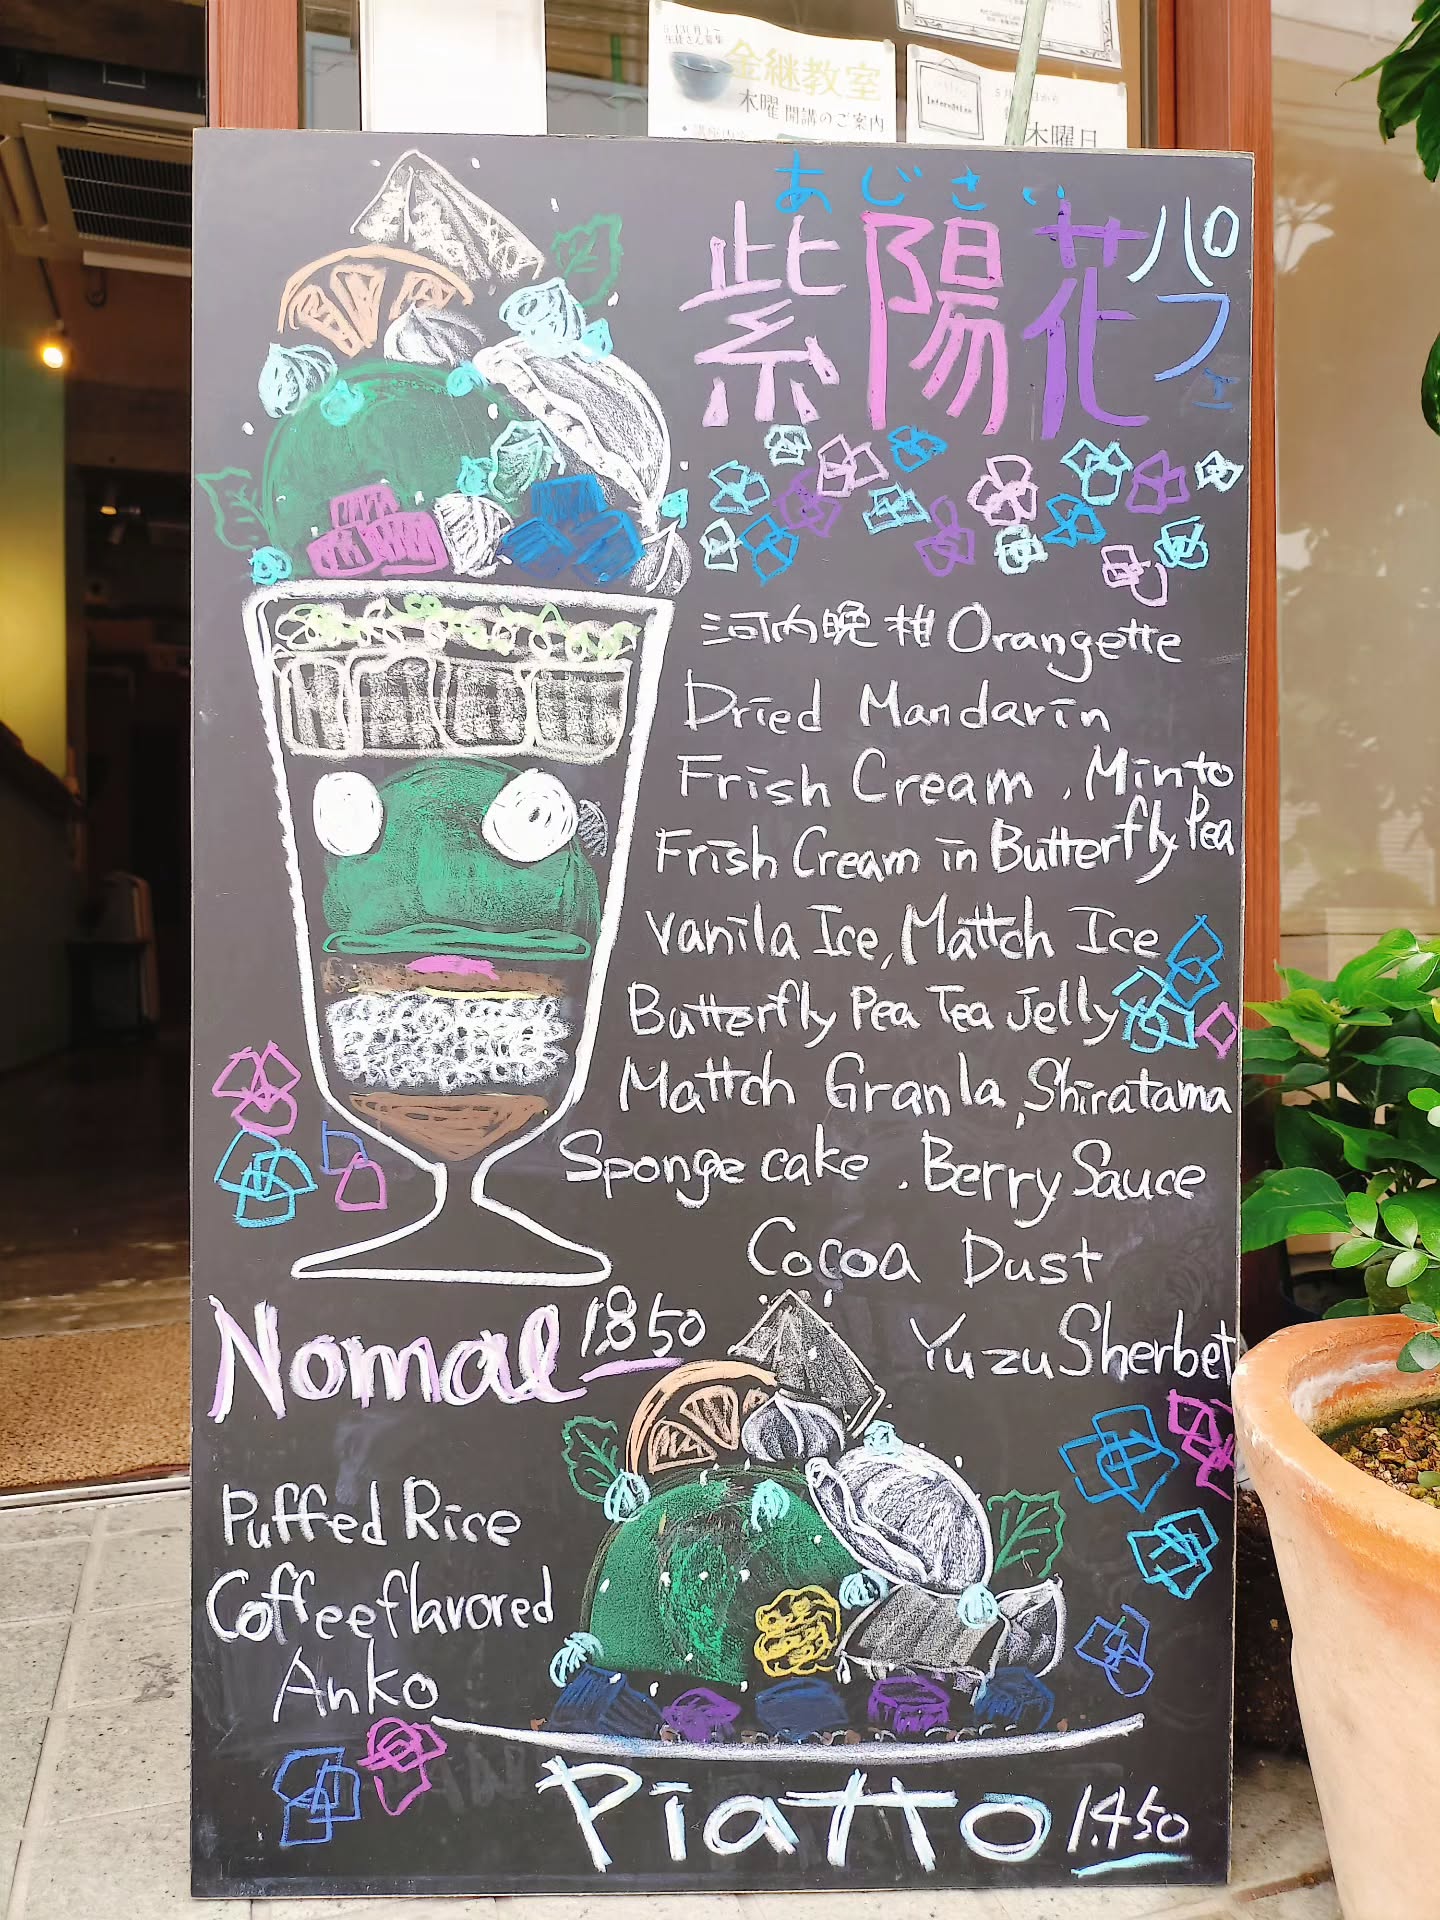 生徒さん募集
金継教室
木曜 開講のご案内
Information
木曜日
あじさい
紫陽花パフェ
河内晩柑 Orangette
Dried Mandarin
Frish Cream . Minto
Frish Cream in Butterfly Pea
vanila Ice, Mattch Ice
Butterfly Pea Tea Jelly
Mattch Granla, Shiratama
Sponge cake . Berry Sauce
Cocoa Dust
Yuzu Sherbet
Nomal 1.850
Puffed Rice
Coffeeflavored
Anko
Piatto 1.450